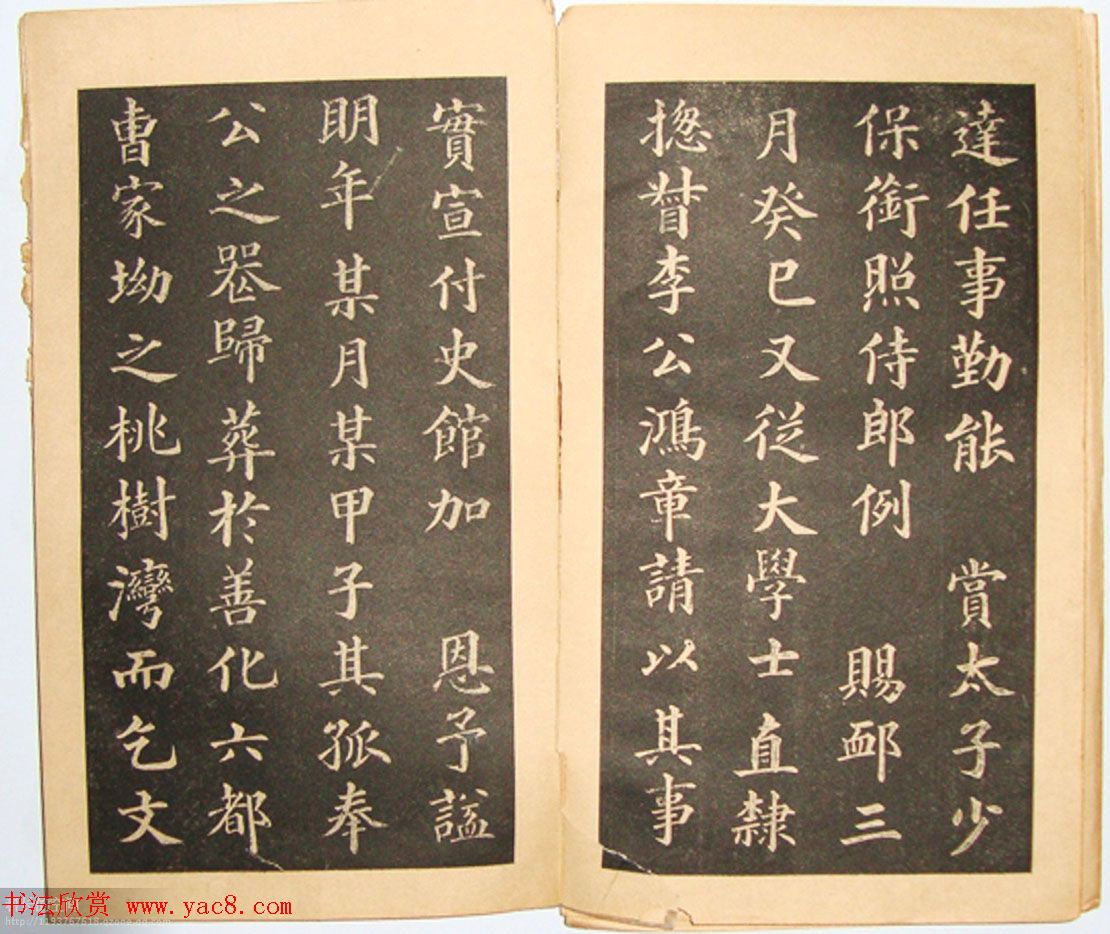 達任事勤能　賞太子少
保銜照侍郎例　賜䘏三
月癸巳又從大學士直隸
揔督李公鴻章請以其事
實宣付史館加　恩予謚
明年某月某甲子其孤奉
公之器歸葬於善化六都
曹家坳之桃樹灣而乞文
书法欣赏 www.yac8.com